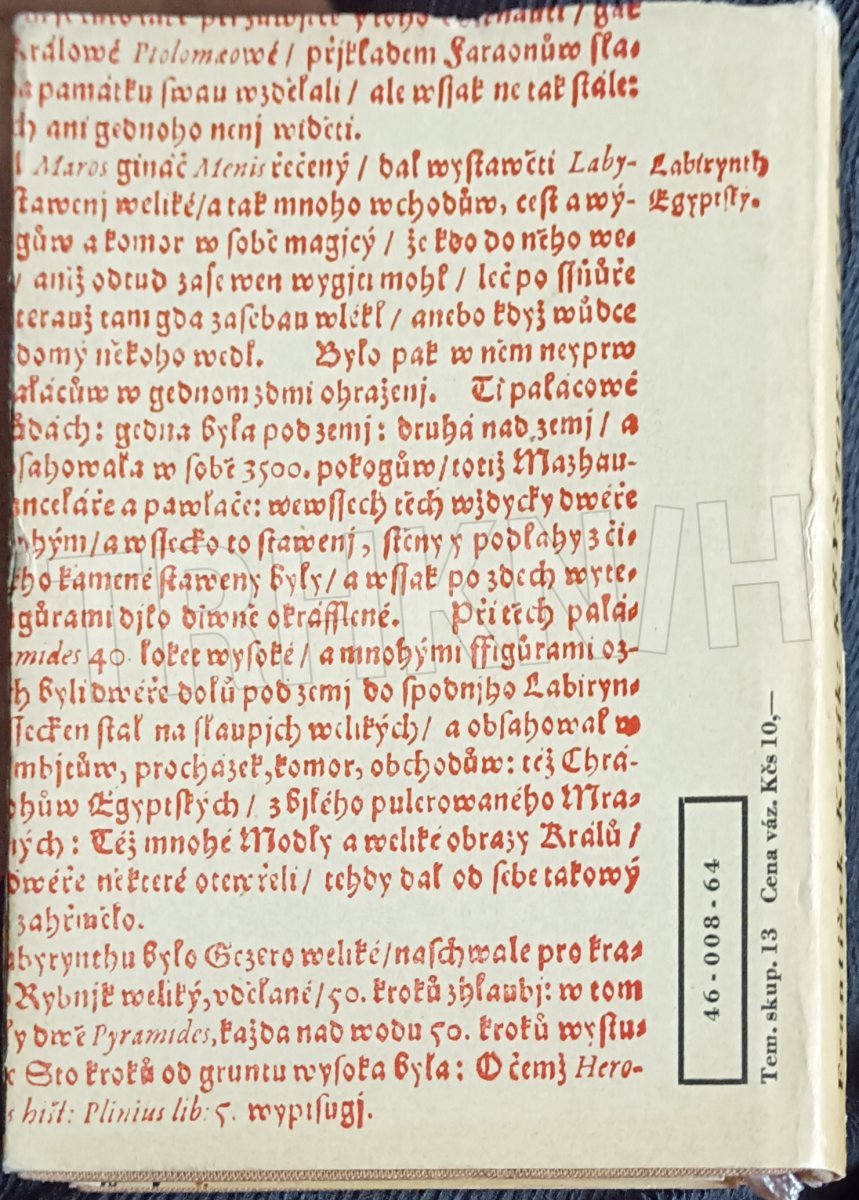 Králowé Ptolomæowé / přjkladem Faraonůw sla-
památku swau wzdělali / ale wssak ne tak stále:
ani gednoho nenj widěti.
Maros gináč Menis řečený / dal wystawěti Laby-
Labirynth
stawenj weliké / a tak mnoho wchodůw, cest a wý-
Egyptský.
gůw a komor w sobě magicý / že kdo do něho we-
/ aniž odtud zase wen wygjti mohl / leč po ssňůře
kterauž tam gda za sebau wlékl / anebo když wůdce
domý někoho wedl. Bylo pak w něm neyprw
palácůw w gednom zdmi ohraženj. Ti palácowé
ůdách: gedna byla pod zemj: druhá nad zemj / a
sahowala w sobě 3500. pokogůw / totiž Mazhau-
anceláře a pawlače: we wssech těch wždycky dwéře
hým / a wssecko to stawenj, stěny y podlahy z či-
ho kamene staweny byly / a wssak po zdech wyte-
gůrami djlo diwně okrásslené. Při těch palá-
mides 40. loket wysoké / a mnohými ffigůrami oz-
h byli dwéře dolů pod zemj do spodnjho Labiryn-
ssecken stál na slaupjch welikých / a obsahowal w
mbjtůw, procházek, komor, obchodůw: též Chrá-
ohůw Egyptských / z bjlého pulerowaného Mra-
ných: Též mnohé Modly a weliké obrazy Králů /
dwéře některé otewřeli / tehdy dal od sebe takowý
zahřmělo.
abyrynthu bylo Gezero weliké / naschwale pro kra-
Rybnjk weliký, vdělané / 50. kroků zhlaubj: w tom
ly dwě Pyramides, každá nad wodu 50. kroků wystu-
Sto kroků od gruntu wysoka byla: O čemž Hero-
s hist: Plinius lib: 5. wypisugj.
46-008-64
Tem. skup. 13 Cena váz. Kčs 10,—
František Kožík:
TRHKNIH